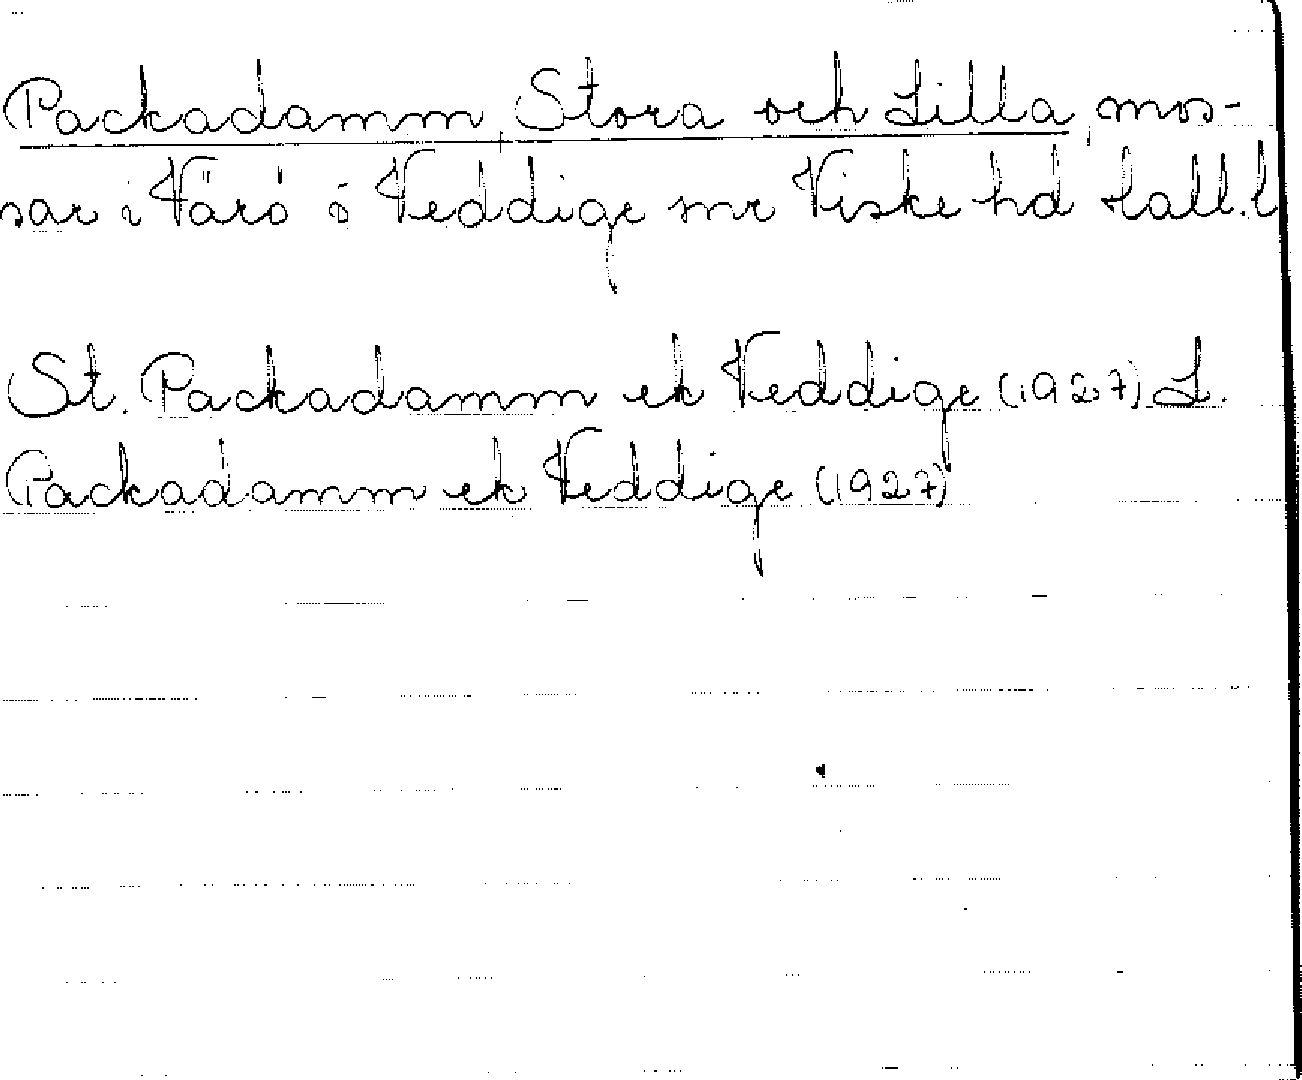 Packadamm, Stora och Lilla, mos-
sar i Värö o Veddige snr Viske hd Hall. l
St. Packadamm ek Veddige (1927) L.
Packadamm ek Veddige (1927)